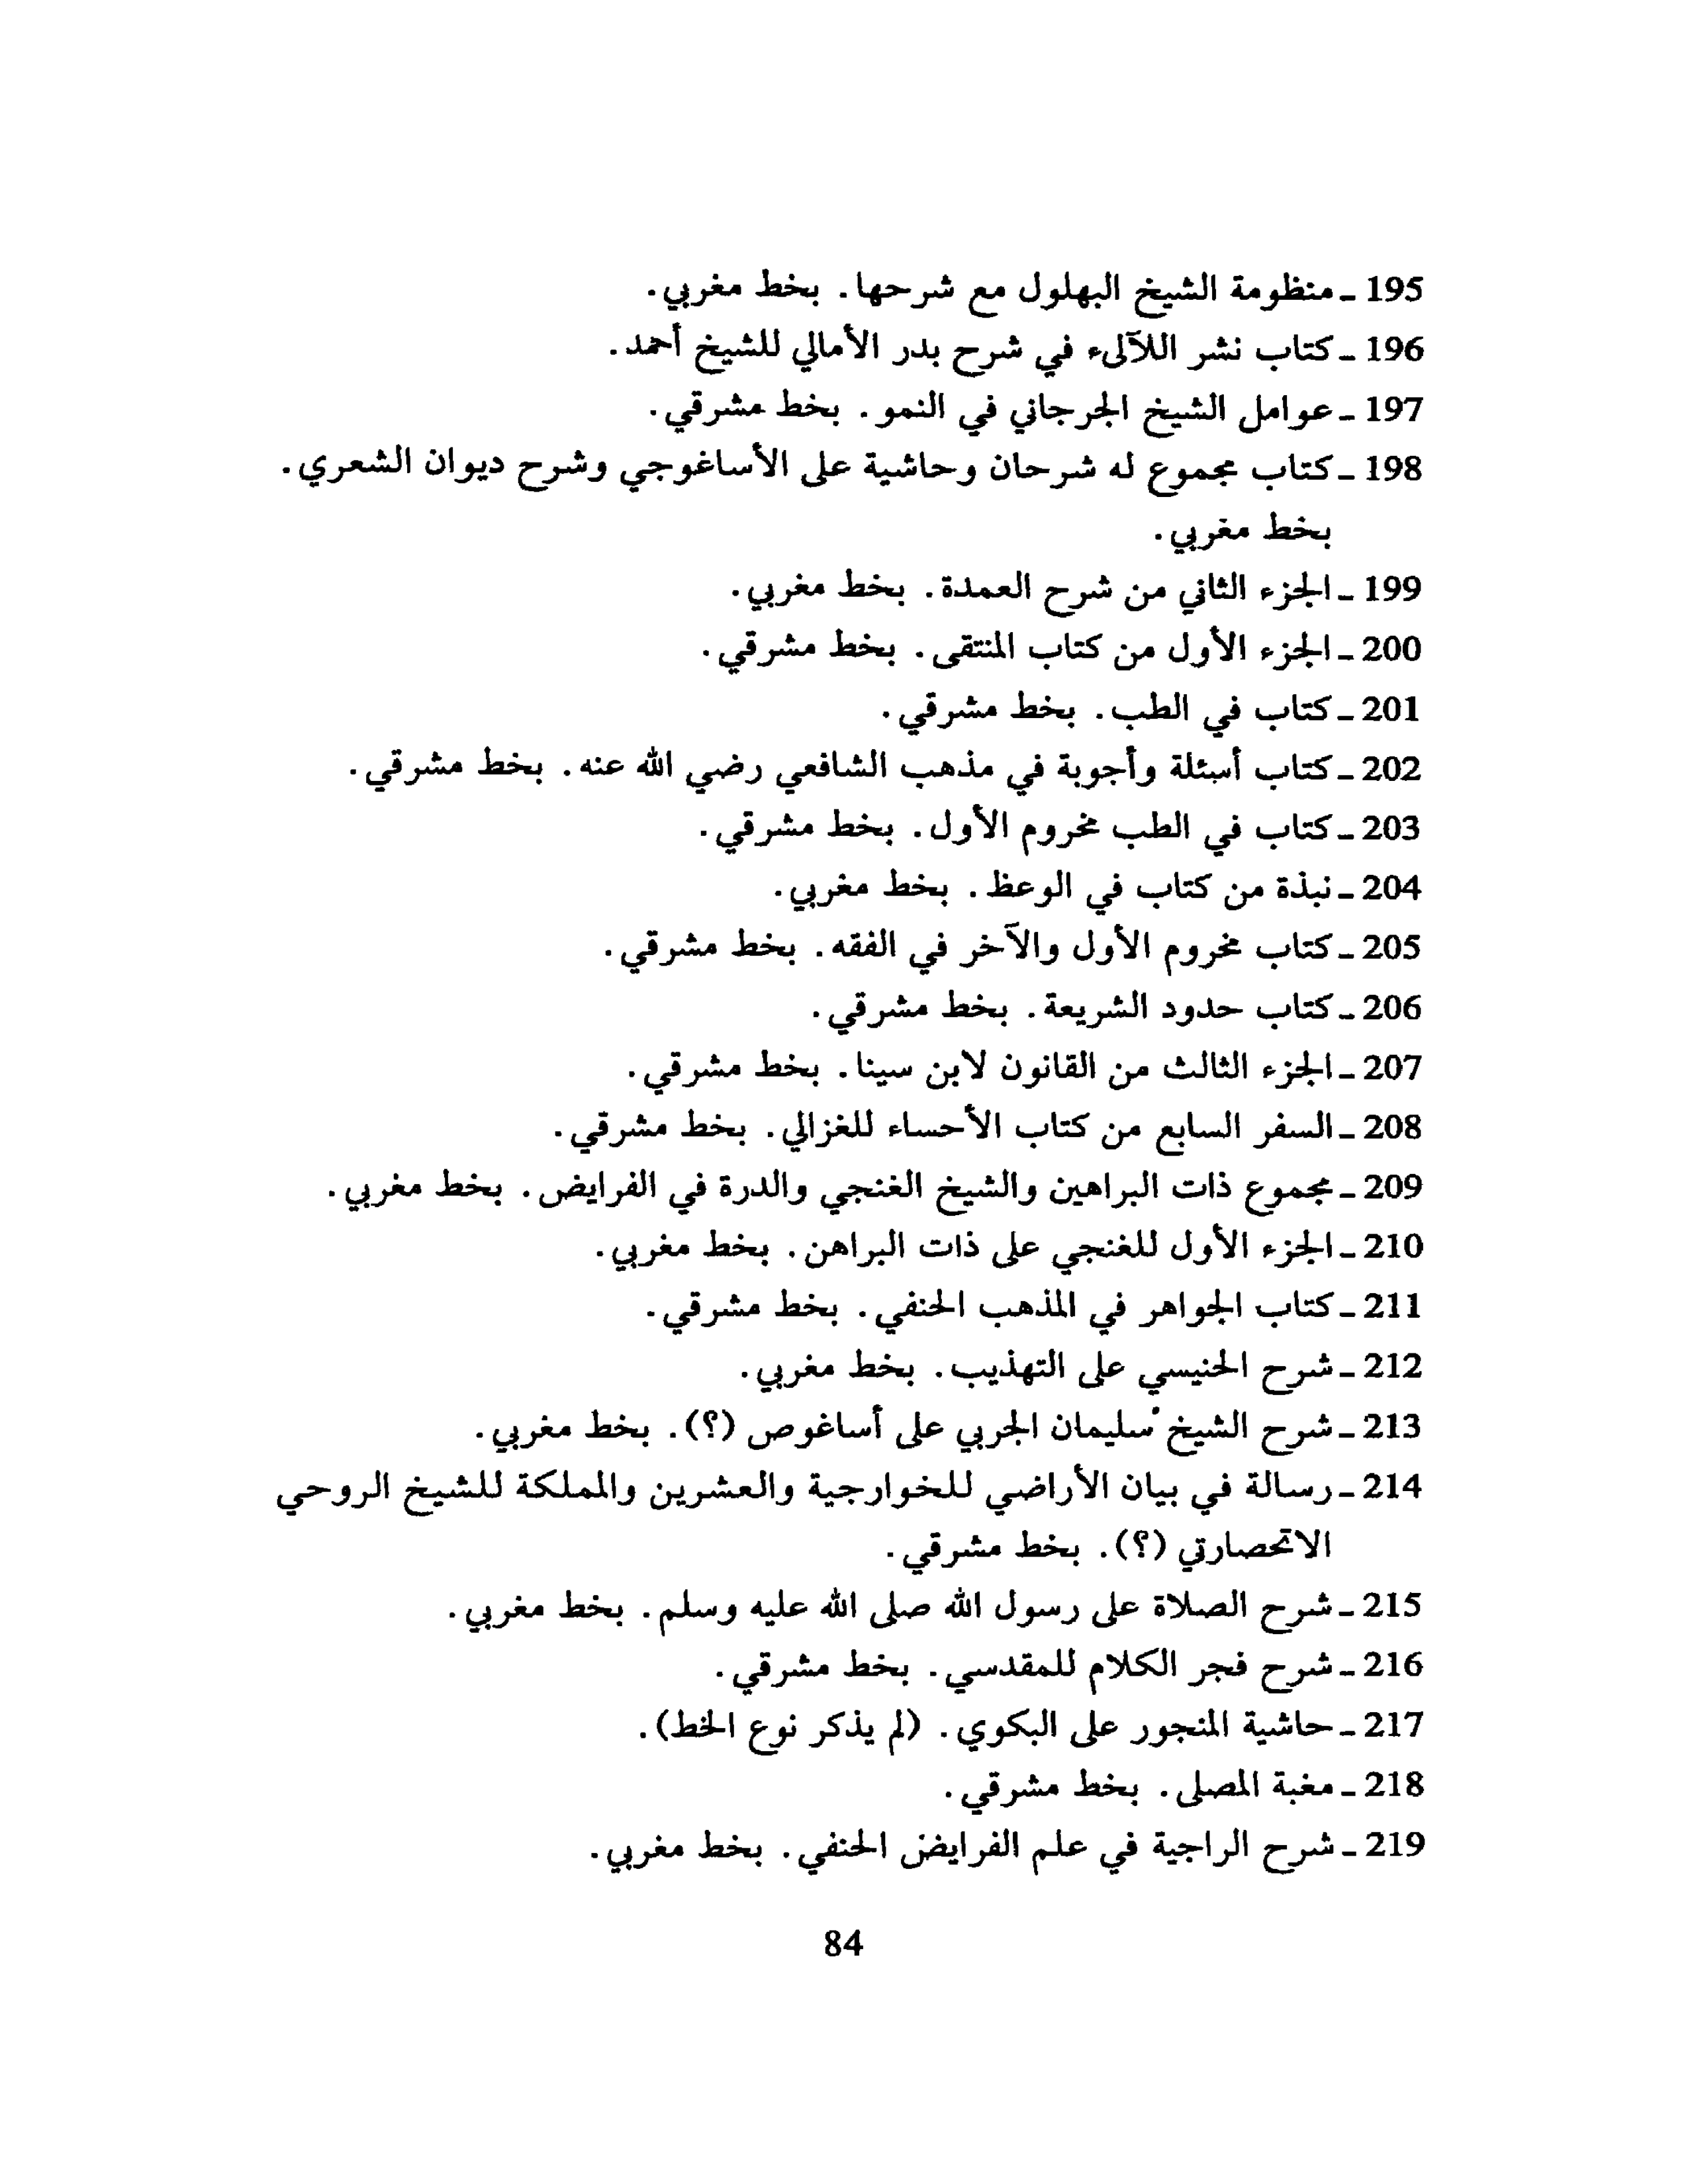 195 ـ منظومة الشيخ البهلول مع شرحها. بخط مغربي.
196 ـ كتاب نشر اللآلىء في شرح بدر الأمالي للشيخ أحمد.
197 ـ عوامل الشيخ الجرجاني في النمو. بخط مشرقي.
198 ـ كتاب مجموع له شرحان وحاشية على الأساغوجي وشرح ديوان الشعري.
بخط مغربي.
199 ـ الجزء الثاني من شرح العمدة. بخط مغربي.
200 ـ الجزء الأول من كتاب المنتقى. بخط مشرقي.
201 ـ كتاب في الطب. بخط مشرقي.
202 ـ كتاب أسئلة وأجوبة في مذهب الشافعي رضي الله عنه. بخط مشرقي.
203 ـ كتاب في الطب مخروم الأول. بخط مشرقي.
204 ـ نبذة من كتاب في الوعظ. بخط مغربي.
205 ـ كتاب مخروم الأول والآخر في الفقه. بخط مشرقي.
206 ـ كتاب حدود الشريعة. بخط مشرقي.
207 ـ الجزء الثالث من القانون لابن سينا. بخط مشرقي.
208 ـ السفر السابع من كتاب الأحساء للغزالي. بخط مشرقي.
209 ـ مجموع ذات البراهين والشيخ الغنجي والدرة في الفرايض. بخط مغربي.
210 ـ الجزء الأول للغنجي على ذات البراهن. بخط مغربي.
211 ـ كتاب الجواهر في المذهب الحنفي. بخط مشرقي.
212 ـ شرح الحنيسي على التهذيب. بخط مغربي.
213 ـ شرح الشيخ سليمان الجربي على أساغوص (؟). بخط مغربي.
214 ـ رسالة في بيان الأراضي للخوارجية والعشرين والملكة للشيخ الروحي
الاتحصارتي (؟). بخط مشرقي.
215 ـ شرح الصلاة على رسول الله صلى الله عليه وسلم. بخط مغربي.
216 ـ شرح فجر الكلام للمقدسي. بخط مشرقي.
217 ـ حاشية المنجور على البكوي. (لم يذكر نوع الخط).
218 ـ مغبة المصلى. بخط مشرقي.
219 ـ شرح الراجية في علم الفرايض الحنفي. بخط مغربي.
84